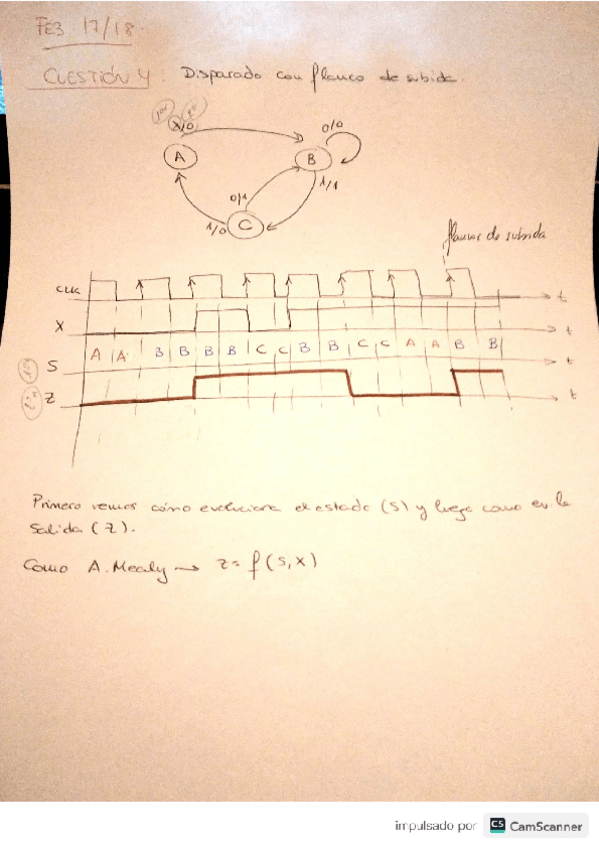 FEB 17/18.
CUESTIÓN 4: Disparado con flanco de subida.
X/0
0/0
A
B
1/1
0/1
1/0
C
flanco de subida
CLK
t
X
t
A A B B B B C C B B C C A A B B
S
t
Z
t
Primero vemos cómo evoluciona el estado (S) y luego como ev. la
Salida (Z).
Como A. Mealy → Z = f(S, X)
impulsado por CS CamScanner